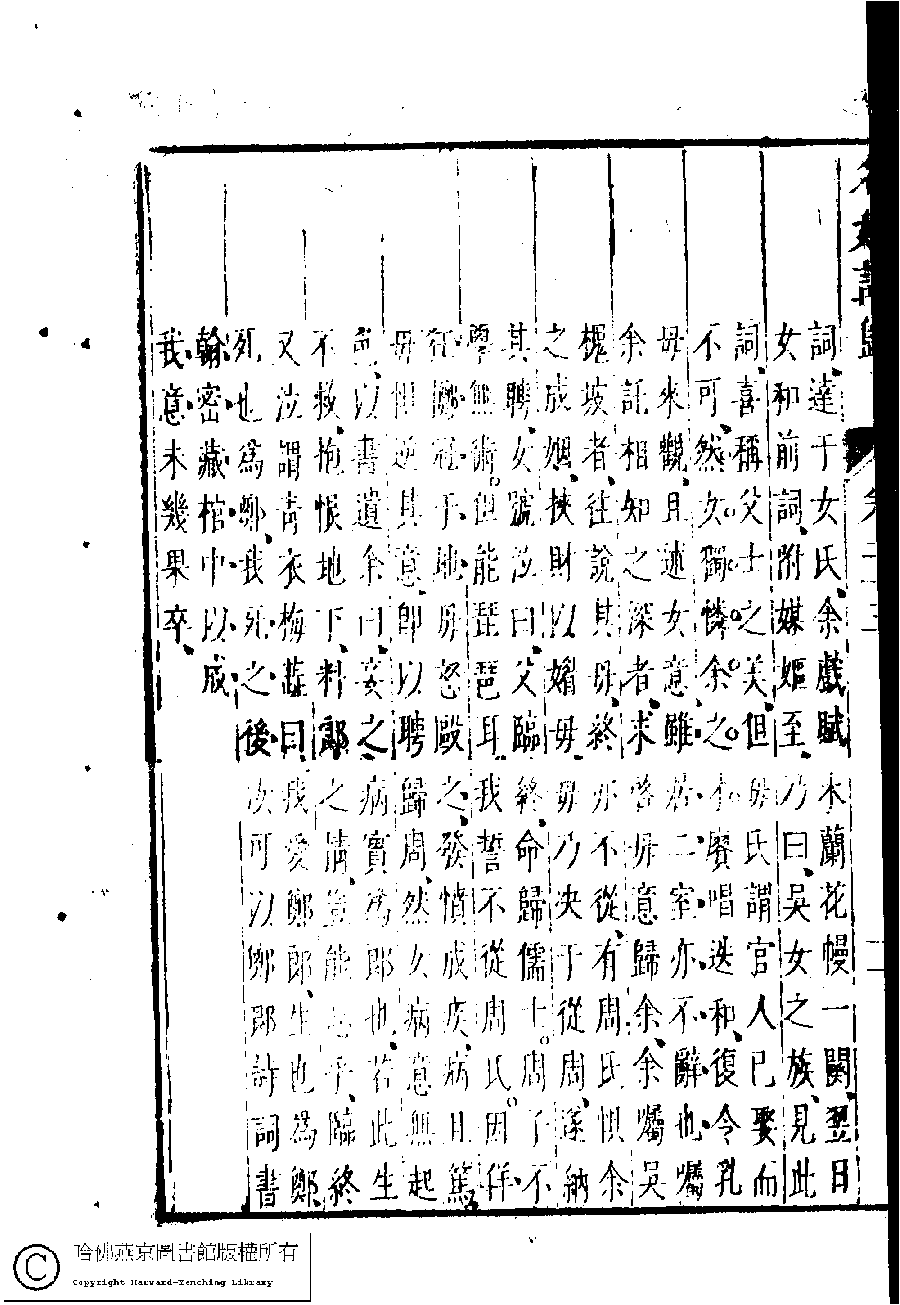 名媛詩歸 卷二十三
詞達于女氏余戲賦木蘭花幔一闋翌日
女和前詞附媒嫗至乃曰吳女之族見此
詞喜稱父士之美但毋氏謂官人已娶而
不可然女獨憐余之才賡唱迭和復令乳
毋來觀且述女意雖居二室亦不辭也囑
余託相知之深者求啓毋意歸余余囑吳
槐坡者往說其毋終亦不從有周氏惧余
之成姻挾財以媚毋毋乃决于從周遂納
其聘女號泣曰父臨終命歸儒士周了不
學無術但能琵琶耳我誓不從周氏因佯
狂擲冠于地毋怒毆之發憤成疾病且篤
毋惧逆其意卽以聘歸周然女病意無起
色以書遺余曰妾之病實為郎也若此生
不救抱恨地下料郎之情豈能忘乎臨終
又泣謂青衣梅蕊曰我愛鄭郎生也為鄭
死也為鄭我死之後汝可以鄭郎詩詞書
翰密藏棺中以成
我意未幾果卒
哈佛燕京圖書館版權所有
Copyright Harvard-Yenching Library